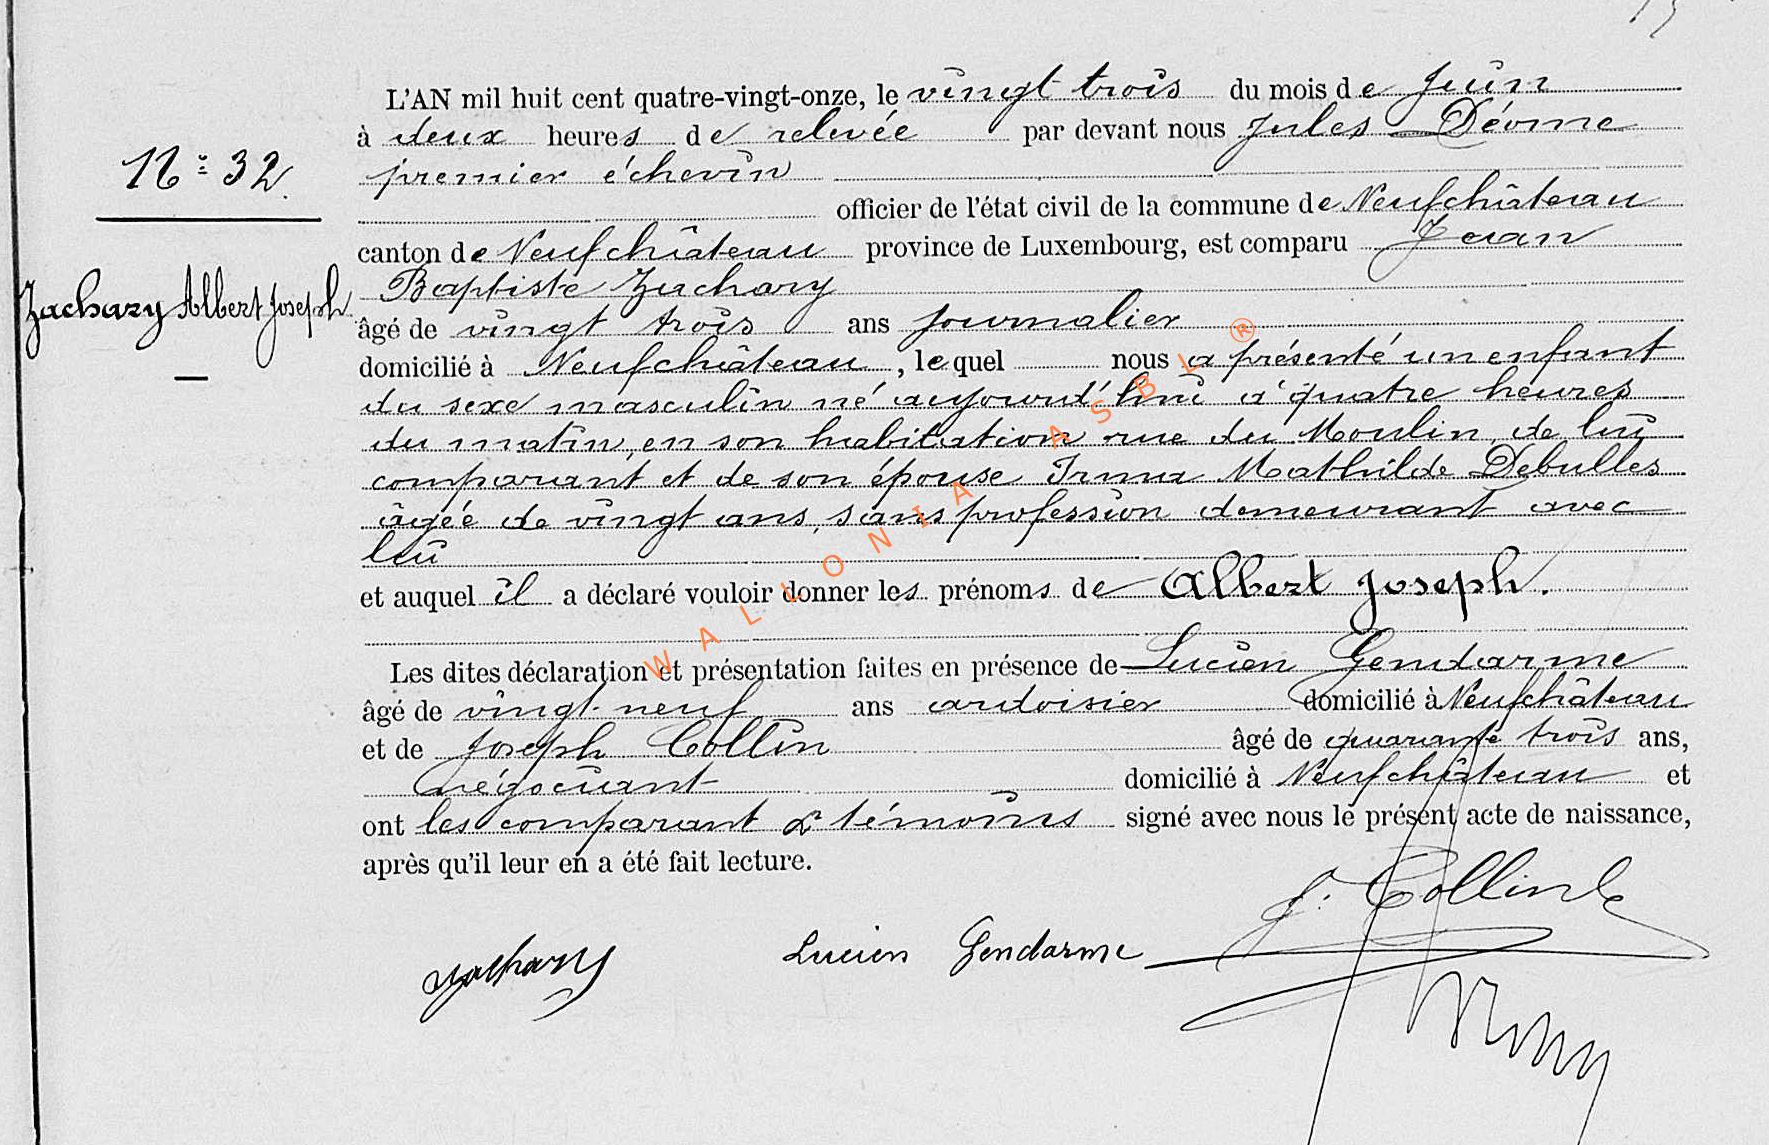 L'AN mil huit cent quatre-vingt-onze, le vingt trois du mois de Juin
à deux heures de relevée par devant nous Jules Déome
N° 32.
premier échevin
officier de l'état civil de la commune de Neufchâteau
canton de Neufchâteau province de Luxembourg, est comparu Jean
Zachary Albert Joseph
Baptiste Zachary
âgé de vingt trois ans journalier
domicilié à Neufchâteau, lequel nous a présenté un enfant
du sexe masculin né aujourd'hui à quatre heures
du matin, en son habitation rue du Moulin, de lui
comparant et de son épouse Irma Mathilde Debulles
âgée de vingt ans, sans profession demeurant avec
lui
et auquel il a déclaré vouloir donner les prénoms de Albert Joseph.
Les dites déclaration et présentation faites en présence de Lucien Gendarme
âgé de vingt-neuf ans ardoisier domicilié à Neufchâteau
et de Joseph Collin âgé de quarante trois ans,
négociant domicilié à Neufchâteau et
ont les comparant & témoins signé avec nous le présent acte de naissance,
après qu'il leur en a été fait lecture.
J. Collin
Zachary Lucien Gendarme
WALLONIA ASBL ®